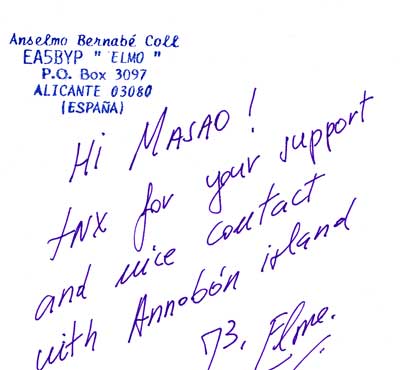 Anselmo Bernabé Coll
EA5BYP " ELMO "
P.O. Box 3097
ALICANTE 03080
(ESPAÑA)
Hi MASAO!
tnx for your support
and nice contact
with Annobón island
73, Elmo.